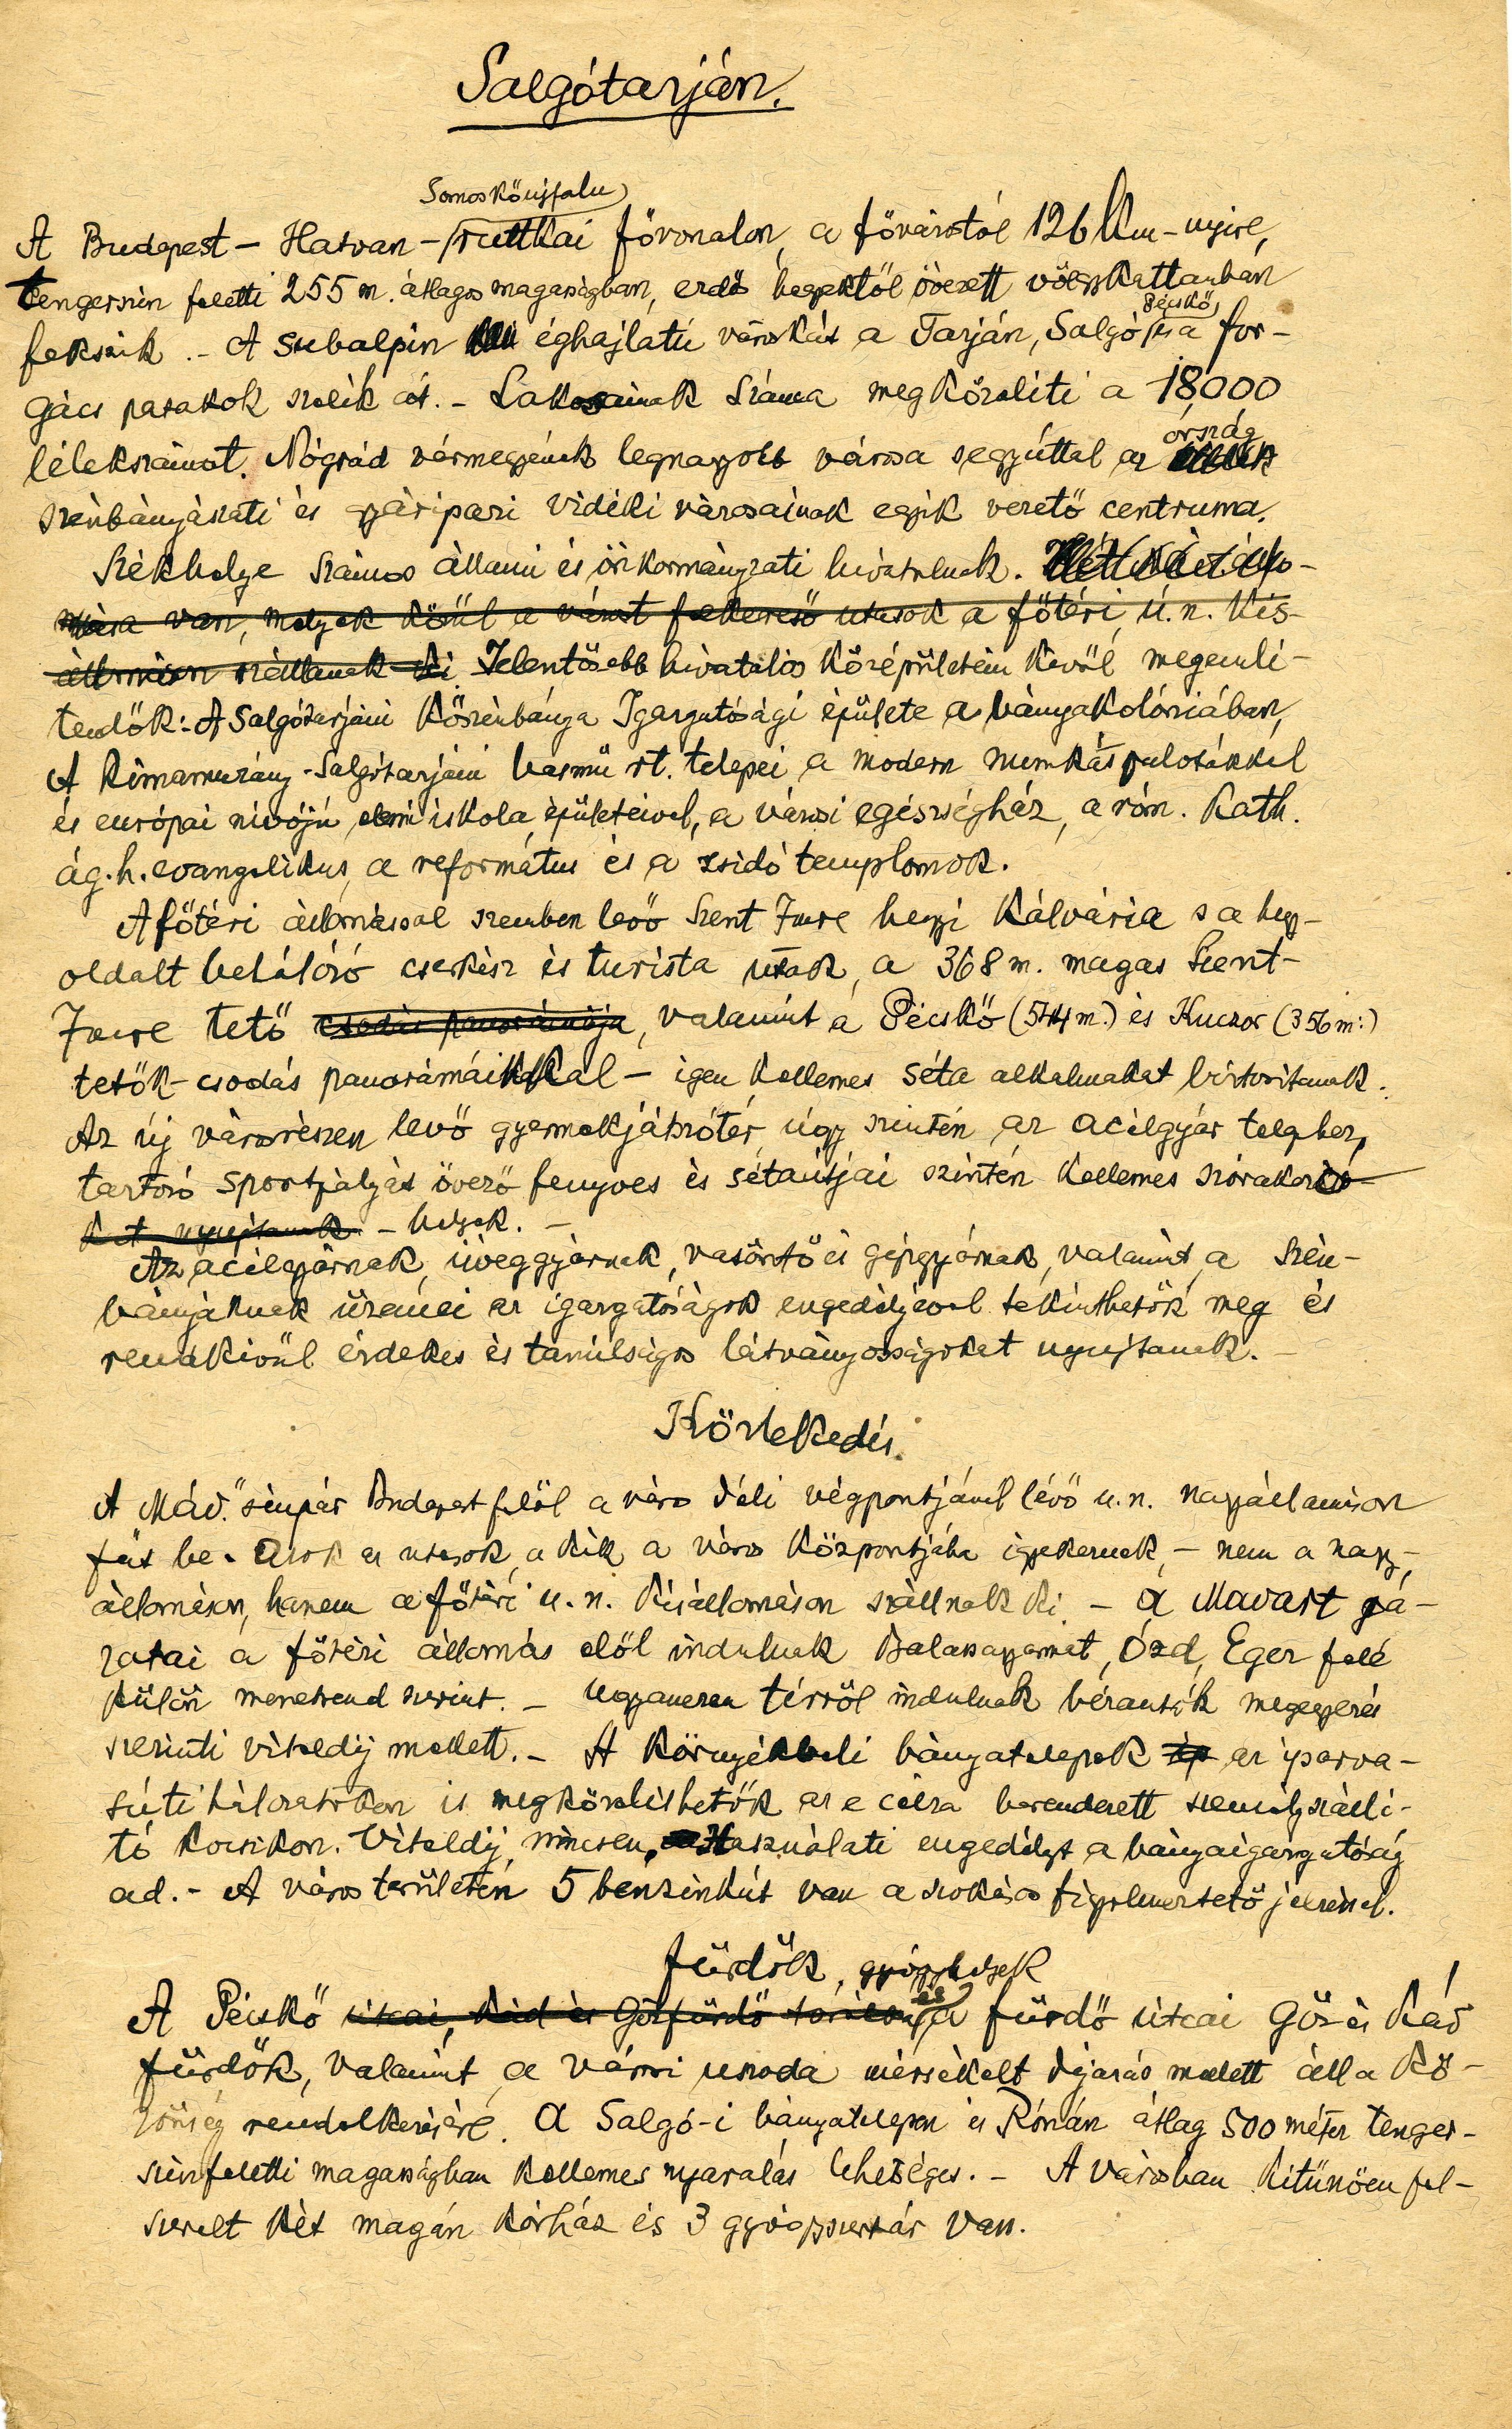 Salgótarján.
Somoskőújfalu
A Budapest – Hatvan – ruttkai fővonalon, a fővárostól 126 Km-nyire,
tengerszin feletti 255 m. átlagos magasságban, erdős hegyektől övezett völgykattanban
Pécskő,
fekszik. – A subalpin éghajlatú városkát a Tarján, Salgó, és a for-
gács patakok szelik át. – Lakosainak száma megközeliti a 18,000
ország
lélekszámot. Nógrád vármegyének legnagyobb városa s egyúttal az
szénbányászati és gyáripari vidéki városainak egyik vezető centruma.
Székhelye számos állami és önkormányzati hivatalnak. Két vasútállo-
mása van, melyek közül a várost felkereső utasok a főtéri, ú.n. Kis-
állomáson szállanak ki. Jelentősebb hivatalos középületein kivül megemli-
tendők: A Salgótarjáni Kőszénbánya Igazgatósági épülete a bányakolóniában,
A Rimamurány-Salgótarjáni vasmű rt. telepei a modern munkáspalotákkal
és európai nivójú elemi iskola épületeivel, a városi egészségház, a róm. kath.
ág. h. evangelikus, a református és a zsidó templomok.
A főtéri állomással szemben levő Szent Imre hegyi Kálvária s a hegy-
oldalt behálózó cserkész és turista utak, a 368 m. magas Szent-
Imre tető csodás panorámája, valamint a Pécskő (544 m.) és Kuczor (356 m.)
tetők – csodás panorámáikkal – igen kellemes séta alkalmakat biztositanak.
Az új városrészen levő gyermekjátszótér, úgy szintén az acélgyár telephez
tartozó sportpályát övező fenyves és sétaútjai szintén kellemes szórakozó
kat nyujtanak – helyek. –
Az acélgyárnak, üveggyárnak, vasöntő és gépgyárnak, valamint a szén-
bányáknak üzemei az igazgatóságok engedélyével tekinthetők meg és
rendkivül érdekes és tanúlságos látványosságokat nyujtanak. –
Közlekedés.
A Máv. sinpár Budapest felől a város déli végpontjánál lévő u.n. nagyállomáson
fut be. Azok az utasok, a kik a város központjába igyekeznek, – nem a nagy-
állomáson, hanem a főtéri u.n. kisállomáson szállnak ki. – A Mavart já-
ratai a főtéri állomás elől indulnak Balassagyarmat, Ózd, Eger felé
külön menetrend szerint. – Ugyanezen térről indulnak béraútók megegyezés
szerinti viteldij mellett. – A környékbeli bányatelepek az iparva-
súti hálózatokon is megközelithetők az e célra berendezett személyszálli-
tó kocsikon. Viteldij nincsen. Használati engedélyt a bányaigazgatóság
ad. – A város területén 5 benzinkút van a szokásos figyelmeztető jelzéssel.
Fürdők, gyógyhelyek
A Pécskő útcai, Kád és Gőzfürdő és a fürdő útcai Gőz és Kád
fürdők, valamint a városi uszoda mérsékelt díjazás mellett áll a kö-
zönség rendelkezésére. A Salgó-i bányatelepen és Rónán átlag 500 méter tenger-
szinfeletti magasságban kellemes nyaralás lehetséges. – A városban kitűnően fel-
szerelt két magán kórház és 3 gyógyszertár van.